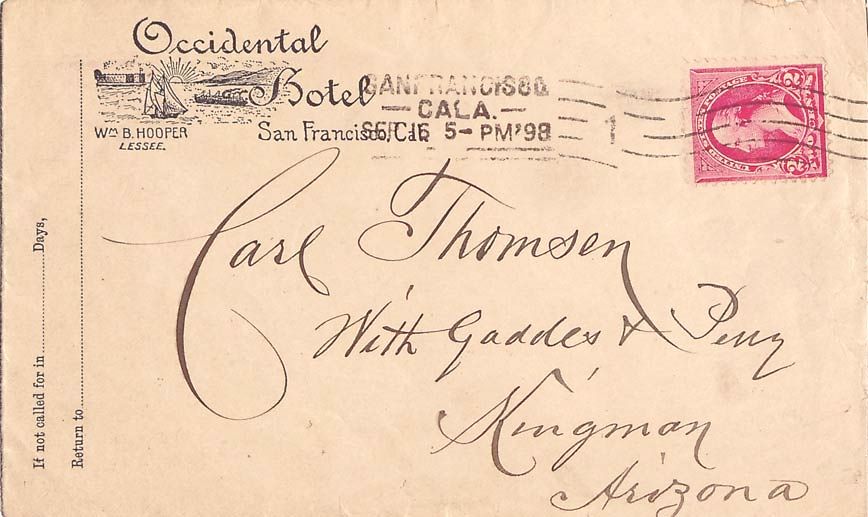 Occidental
Hotel
Wm B. HOOPER
LESSEE.
San Francisco, Cal.
SAN FRANCISCO
CALA.
SEP 16 5-PM '93
1
Carl Thomsen
With Gaddes & Peny
Kingman
Arizona
If not called for in Days,
Return to